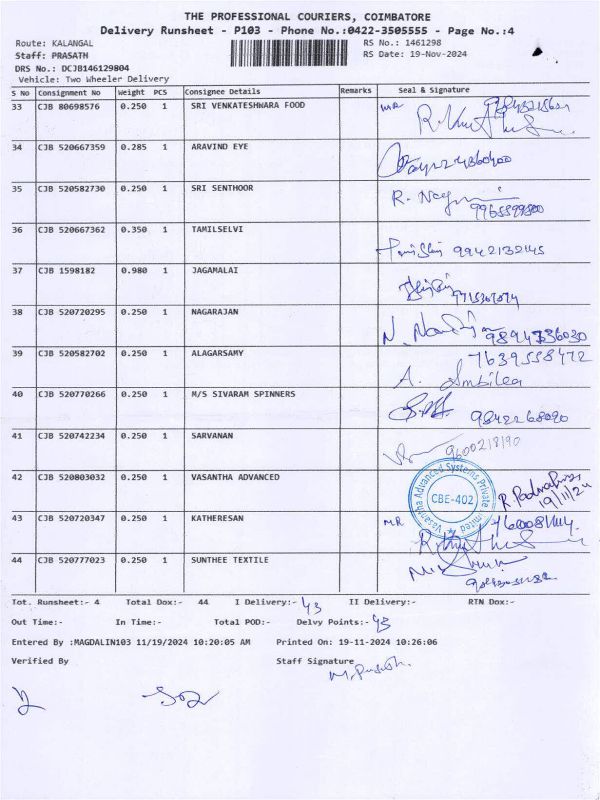 THE PROFESSIONAL COURIERS, COIMBATORE
Delivery Runsheet - P103 - Phone No.:0422-3505555 - Page No.:4
Route: KALANGAL RS No.: 1461298
Staff: PRASATH RS Date: 19-Nov-2024
DRS No.: DCJB146129804
Vehicle: Two Wheeler Delivery
S No Consignment No Weight PCS Consignee Details Remarks Seal & Signature
33 CJB 80698576 0.250 1 SRI VENKATESHWARA FOOD MR
34 CJB 520667359 0.285 1 ARAVIND EYE
35 CJB 520582730 0.250 1 SRI SENTHOOR R.
36 CJB 520667362 0.350 1 TAMILSELVI 9942132145
37 CJB 1598182 0.980 1 JAGAMALAI
38 CJB 520720295 0.250 1 NAGARAJAN N. 9894736030
39 CJB 520582702 0.250 1 ALAGARSAMY 7639558472
A.
40 CJB 520770266 0.250 1 M/S SIVARAM SPINNERS 9842268090
41 CJB 520742234 0.250 1 SARVANAN 9600218190
42 CJB 520803032 0.250 1 VASANTHA ADVANCED Vasantha Advanced Systems Private Limited CBE-402 19/11/24
43 CJB 520720347 0.250 1 KATHERESAN MR
44 CJB 520777023 0.250 1 SUNTHEE TEXTILE
Tot. Runsheet:- 4 Total Dox:- 44 I Delivery:- 43 II Delivery:- RTN Dox:-
Out Time:- In Time:- Total POD:- Delvy Points:- 43
Entered By :MAGDALIN103 11/19/2024 10:20:05 AM Printed On: 19-11-2024 10:26:06
Verified By Staff Signature